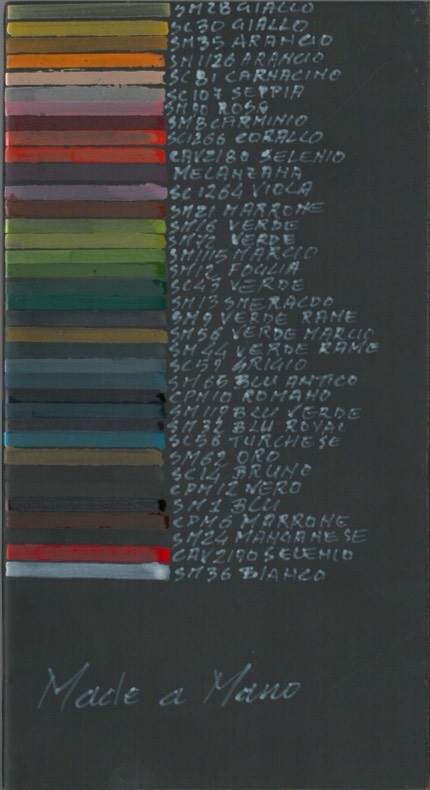 SM28 GIALLO
SC30 GIALLO
SM35 ARANCIO
SM1126 ARANCIO
SC81 CARNACINO
SC107 SEPPIA
SM90 ROSA
SM8 CARMINIO
SC1266 CORALLO
CAV2180 SELENIO
MELANZANA
SC1264 VIOLA
SM21 MARRONE
SM16 VERDE
SM72 VERDE
SM1115 MARCIO
SM12 FOGLIA
SC43 VERDE
SM13 SMERALDO
SM9 VERDE RAME
SM56 VERDE MARCIO
SM44 VERDE RAME
SC59 GRIGIO
SM65 BLU ANTICO
CPM10 ROMANO
SM119 BLU VERDE
SM32 BLU ROYAL
SC56 TURCHESE
SM62 ORO
SC14 BRUNO
CPM12 NERO
SM1 BLU
CPM6 MARRONE
SM24 MANGANESE
CAV2190 SELENIO
SM36 BIANCO
Made a Mano